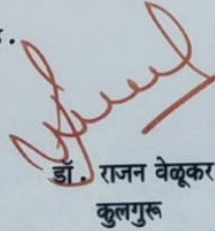 डॉ. राजन वेळूकर
कुलगुरू